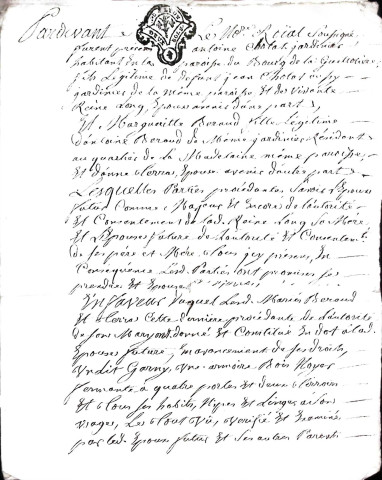 Pardevant Le No.re Roïal Soussigné
furent présens antoine Cholat jardinier
habitant en la paroisse du Bourg de la Guillotiere
fils Légitime de deffunt jean Cholat
jardinier de la même paroisse et de vivante
Reine Long, Epoux avenir d'une part,
Et, Margueritte Beraud fille Légitime
d'antoine Beraud de Même jardinier Résidant
au quartier de la Madelaine même paroisse
et d'anne Terras, Epouse avenir d'autre part
Lesquelles Parties procédantes Savoir L'Epoux
futur Comme Majeur et Encore de l'autorité
et Consentement de lad. Reine Long Sa Mere
et L'Epouse future de l'autorité et Consentem.t
de ses père et Mère tous icy présens, En
Conséquence Lesd. Parties ont promis se
prendre et Epouser
En faveur duquel Lesd. Mariés Beraud
et Terras Cette dernière procédante de l'autorité
de son Mary ont donné et Constitué En dot à lad.
Epouse future, En avancement de ses droits,
Un Lit Garny, une armoire Bois Noyer
fermante à quatre portes et deux tiroirs
Et tous ses habits, Nipes et Linges à son
usage, Le tout Vû, vérifié et Examiné
par led. Epoux futur et Ses autres Parents